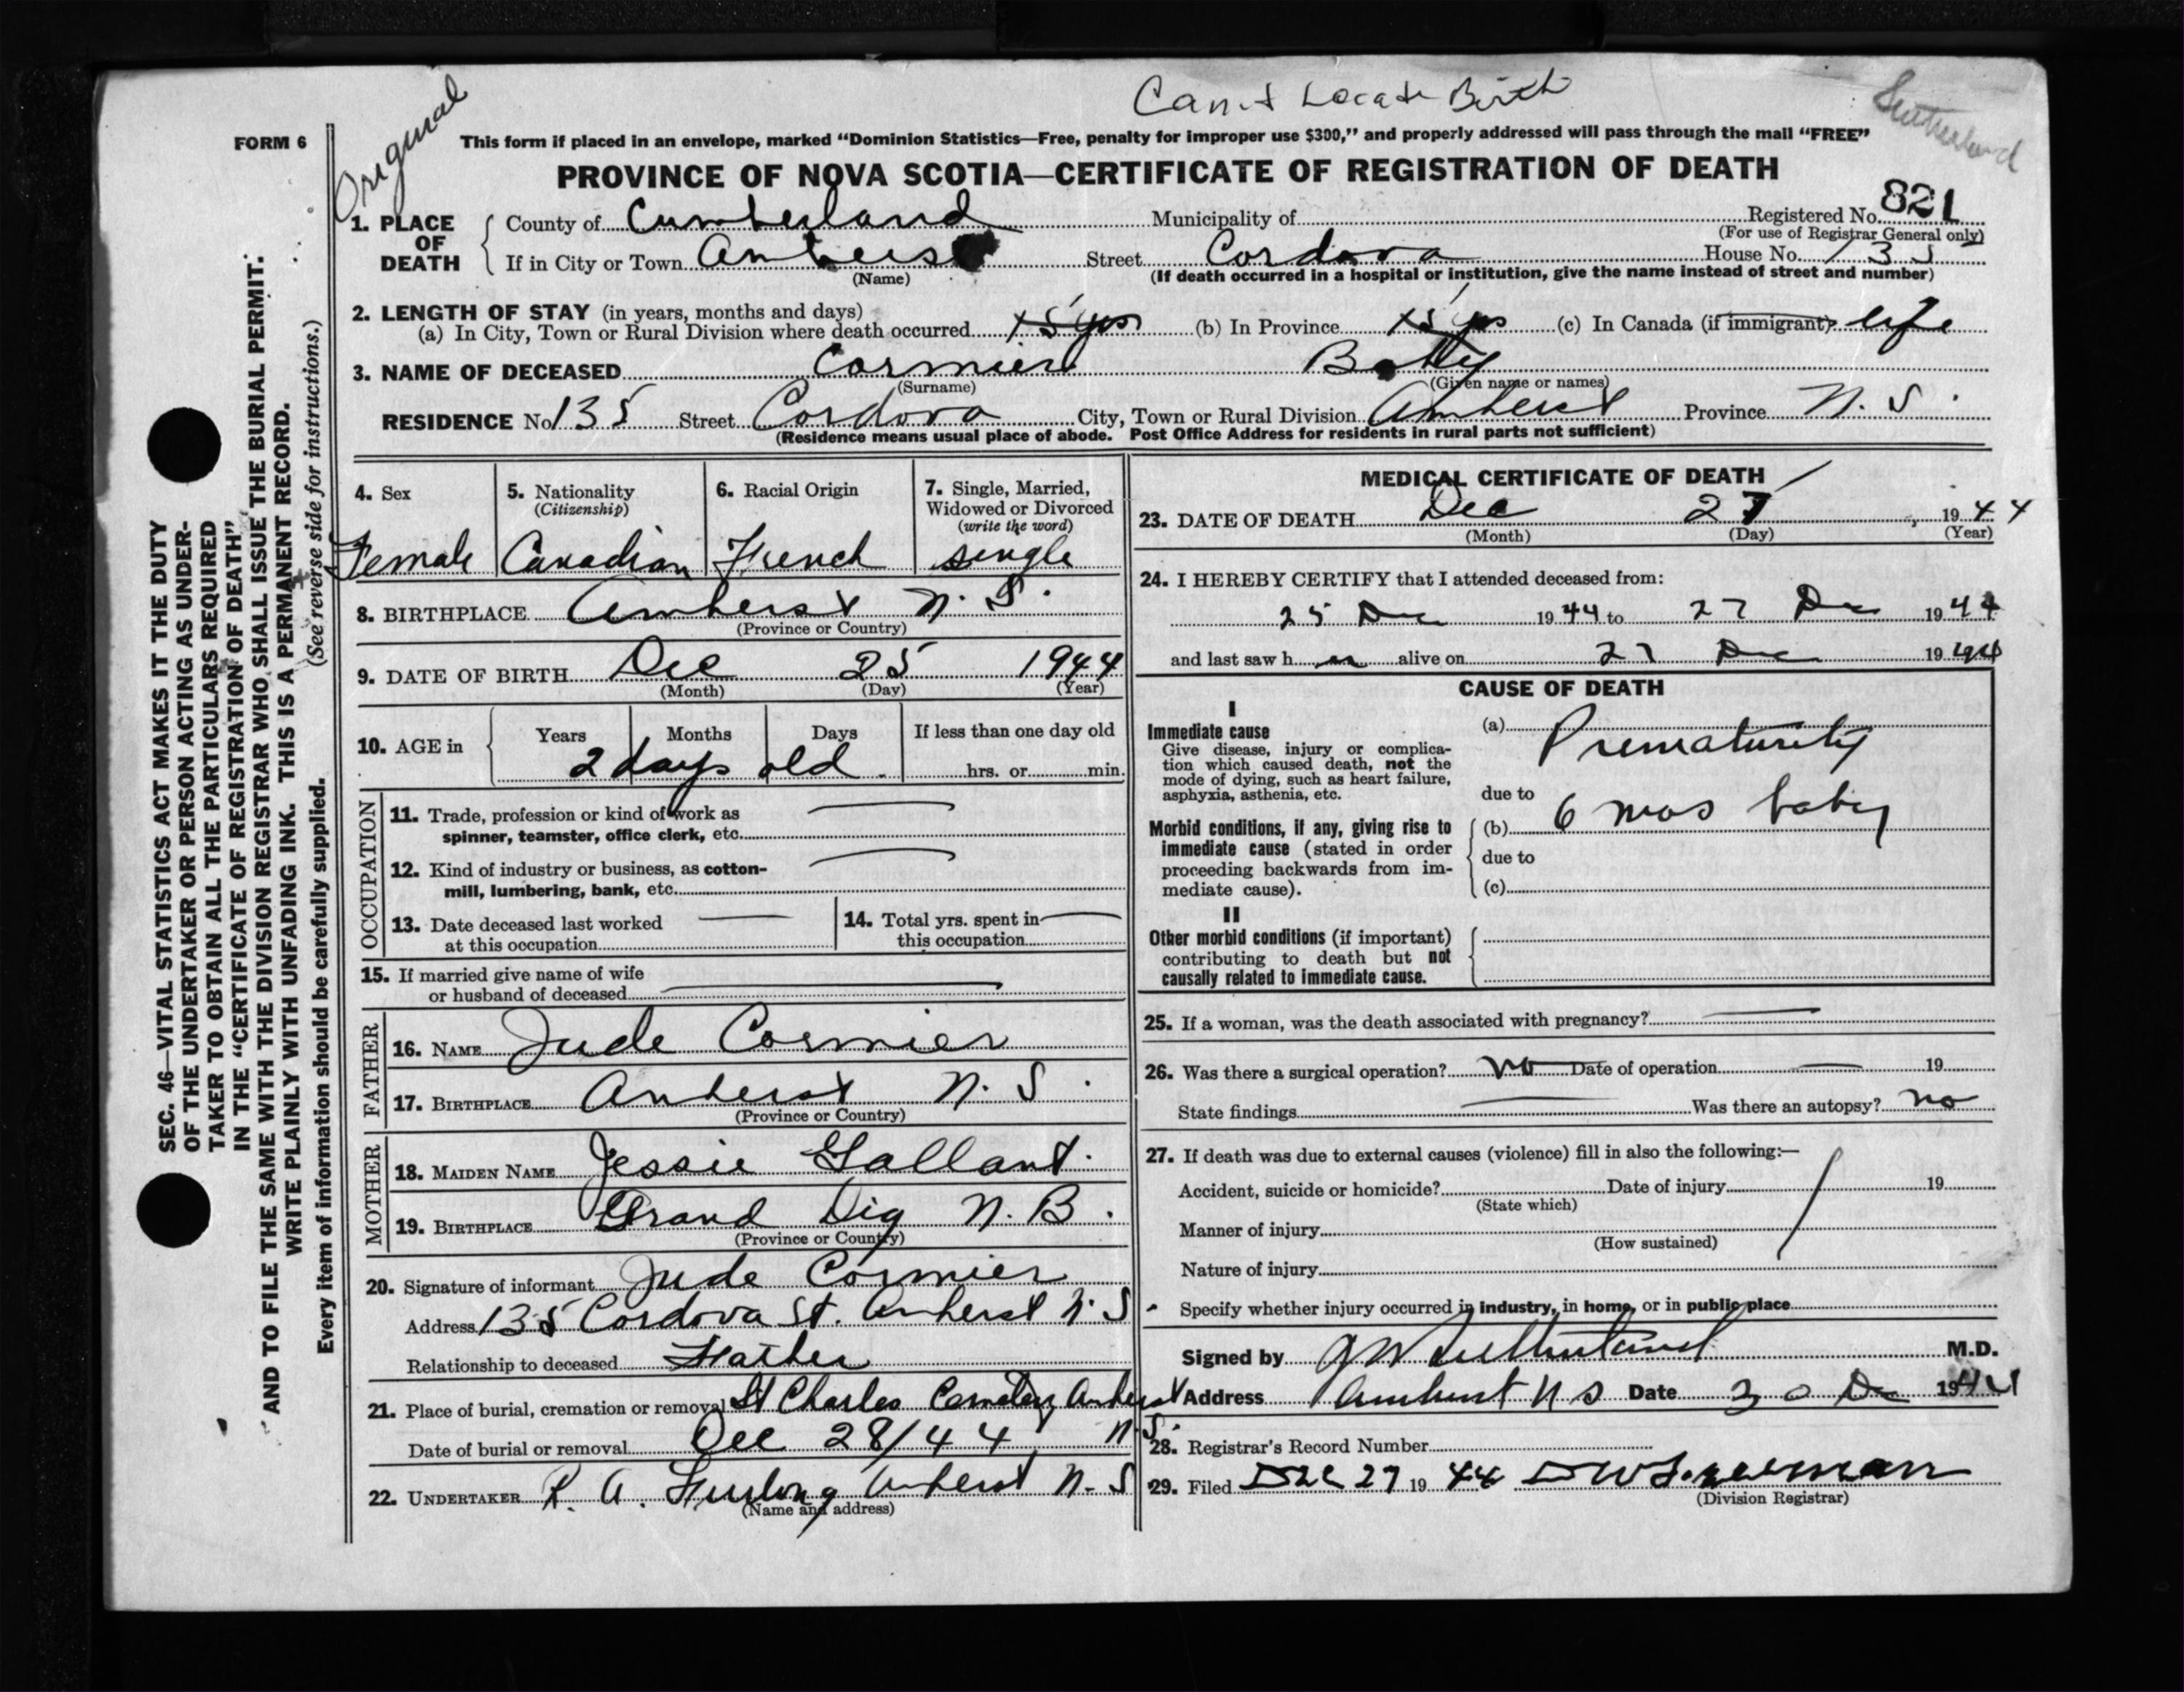 Can't Locate Birth
Sutherland
Original
FORM 6
This form if placed in an envelope, marked “Dominion Statistics—Free, penalty for improper use $300,” and properly addressed will pass through the mail “FREE”
PROVINCE OF NOVA SCOTIA—CERTIFICATE OF REGISTRATION OF DEATH
1. PLACE OF DEATH
County of Cumberland Municipality of Registered No. 821
(For use of Registrar General only)
If in City or Town Amherst Street Cordova House No. 135
(Name) (If death occurred in a hospital or institution, give the name instead of street and number)
2. LENGTH OF STAY (in years, months and days)
(a) In City, Town or Rural Division where death occurred (b) In Province (c) In Canada (if immigrant) life
3. NAME OF DECEASED Cormier
(Surname) (Given name or names)
RESIDENCE No. 135 Street Cordova City, Town or Rural Division Amherst Province N. S.
(Residence means usual place of abode. Post Office Address for residents in rural parts not sufficient)
4. Sex Female
5. Nationality (Citizenship) Canadian
6. Racial Origin French
7. Single, Married, Widowed or Divorced (write the word) single
8. BIRTHPLACE Amherst N. S.
(Province or Country)
9. DATE OF BIRTH Dec 25 1944
(Month) (Day) (Year)
10. AGE in Years Months Days If less than one day old
2 days old. hrs. or min.
OCCUPATION
11. Trade, profession or kind of work as
spinner, teamster, office clerk, etc.
12. Kind of industry or business, as cotton-
mill, lumbering, bank, etc.
13. Date deceased last worked
at this occupation
14. Total yrs. spent in
this occupation
15. If married give name of wife
or husband of deceased
FATHER
16. NAME Jude Cormier
17. BIRTHPLACE Amherst N. S.
(Province or Country)
MOTHER
18. MAIDEN NAME Jessie Gallant.
19. BIRTHPLACE Grand Dig N. B.
(Province or Country)
20. Signature of informant Jude Cormier
Address 135 Cordova St. Amherst N. S
Relationship to deceased Father
21. Place of burial, cremation or removal St Charles Cemetery Amherst
N. S.
Date of burial or removal Dec 28/44
22. UNDERTAKER R. A. Furlong Amherst N. S
(Name and address)
MEDICAL CERTIFICATE OF DEATH
23. DATE OF DEATH Dec 27, 1944
(Month) (Day) (Year)
24. I HEREBY CERTIFY that I attended deceased from:
25 Dec 1944 to 27 Dec 1944
and last saw her alive on 27 Dec 1944
CAUSE OF DEATH
I
Immediate cause
Give disease, injury or complica-
tion which caused death, not the
mode of dying, such as heart failure,
asphyxia, asthenia, etc.
(a) Prematurity
due to
Morbid conditions, if any, giving rise to
immediate cause (stated in order
proceeding backwards from im-
mediate cause).
(b) 6 mos baby
due to
(c)
II
Other morbid conditions (if important)
contributing to death but not
causally related to immediate cause.
25. If a woman, was the death associated with pregnancy?
26. Was there a surgical operation? no Date of operation 19
State findings Was there an autopsy? no
27. If death was due to external causes (violence) fill in also the following:—
Accident, suicide or homicide? Date of injury 19
(State which)
Manner of injury
(How sustained)
Nature of injury
Specify whether injury occurred in industry, in home, or in public place
Signed by Sutherland M.D.
Address Amherst N S Date 30 Dec 1944
28. Registrar's Record Number
29. Filed Dec 27 1944
(Division Registrar)
SEC. 46—VITAL STATISTICS ACT MAKES IT THE DUTY
OF THE UNDERTAKER OR PERSON ACTING AS UNDER-
TAKER TO OBTAIN ALL THE PARTICULARS REQUIRED
IN THE “CERTIFICATE OF REGISTRATION OF DEATH”
AND TO FILE THE SAME WITH THE DIVISION REGISTRAR WHO SHALL ISSUE THE BURIAL PERMIT.
WRITE PLAINLY WITH UNFADING INK. THIS IS A PERMANENT RECORD.
Every item of information should be carefully supplied. (See reverse side for instructions.)